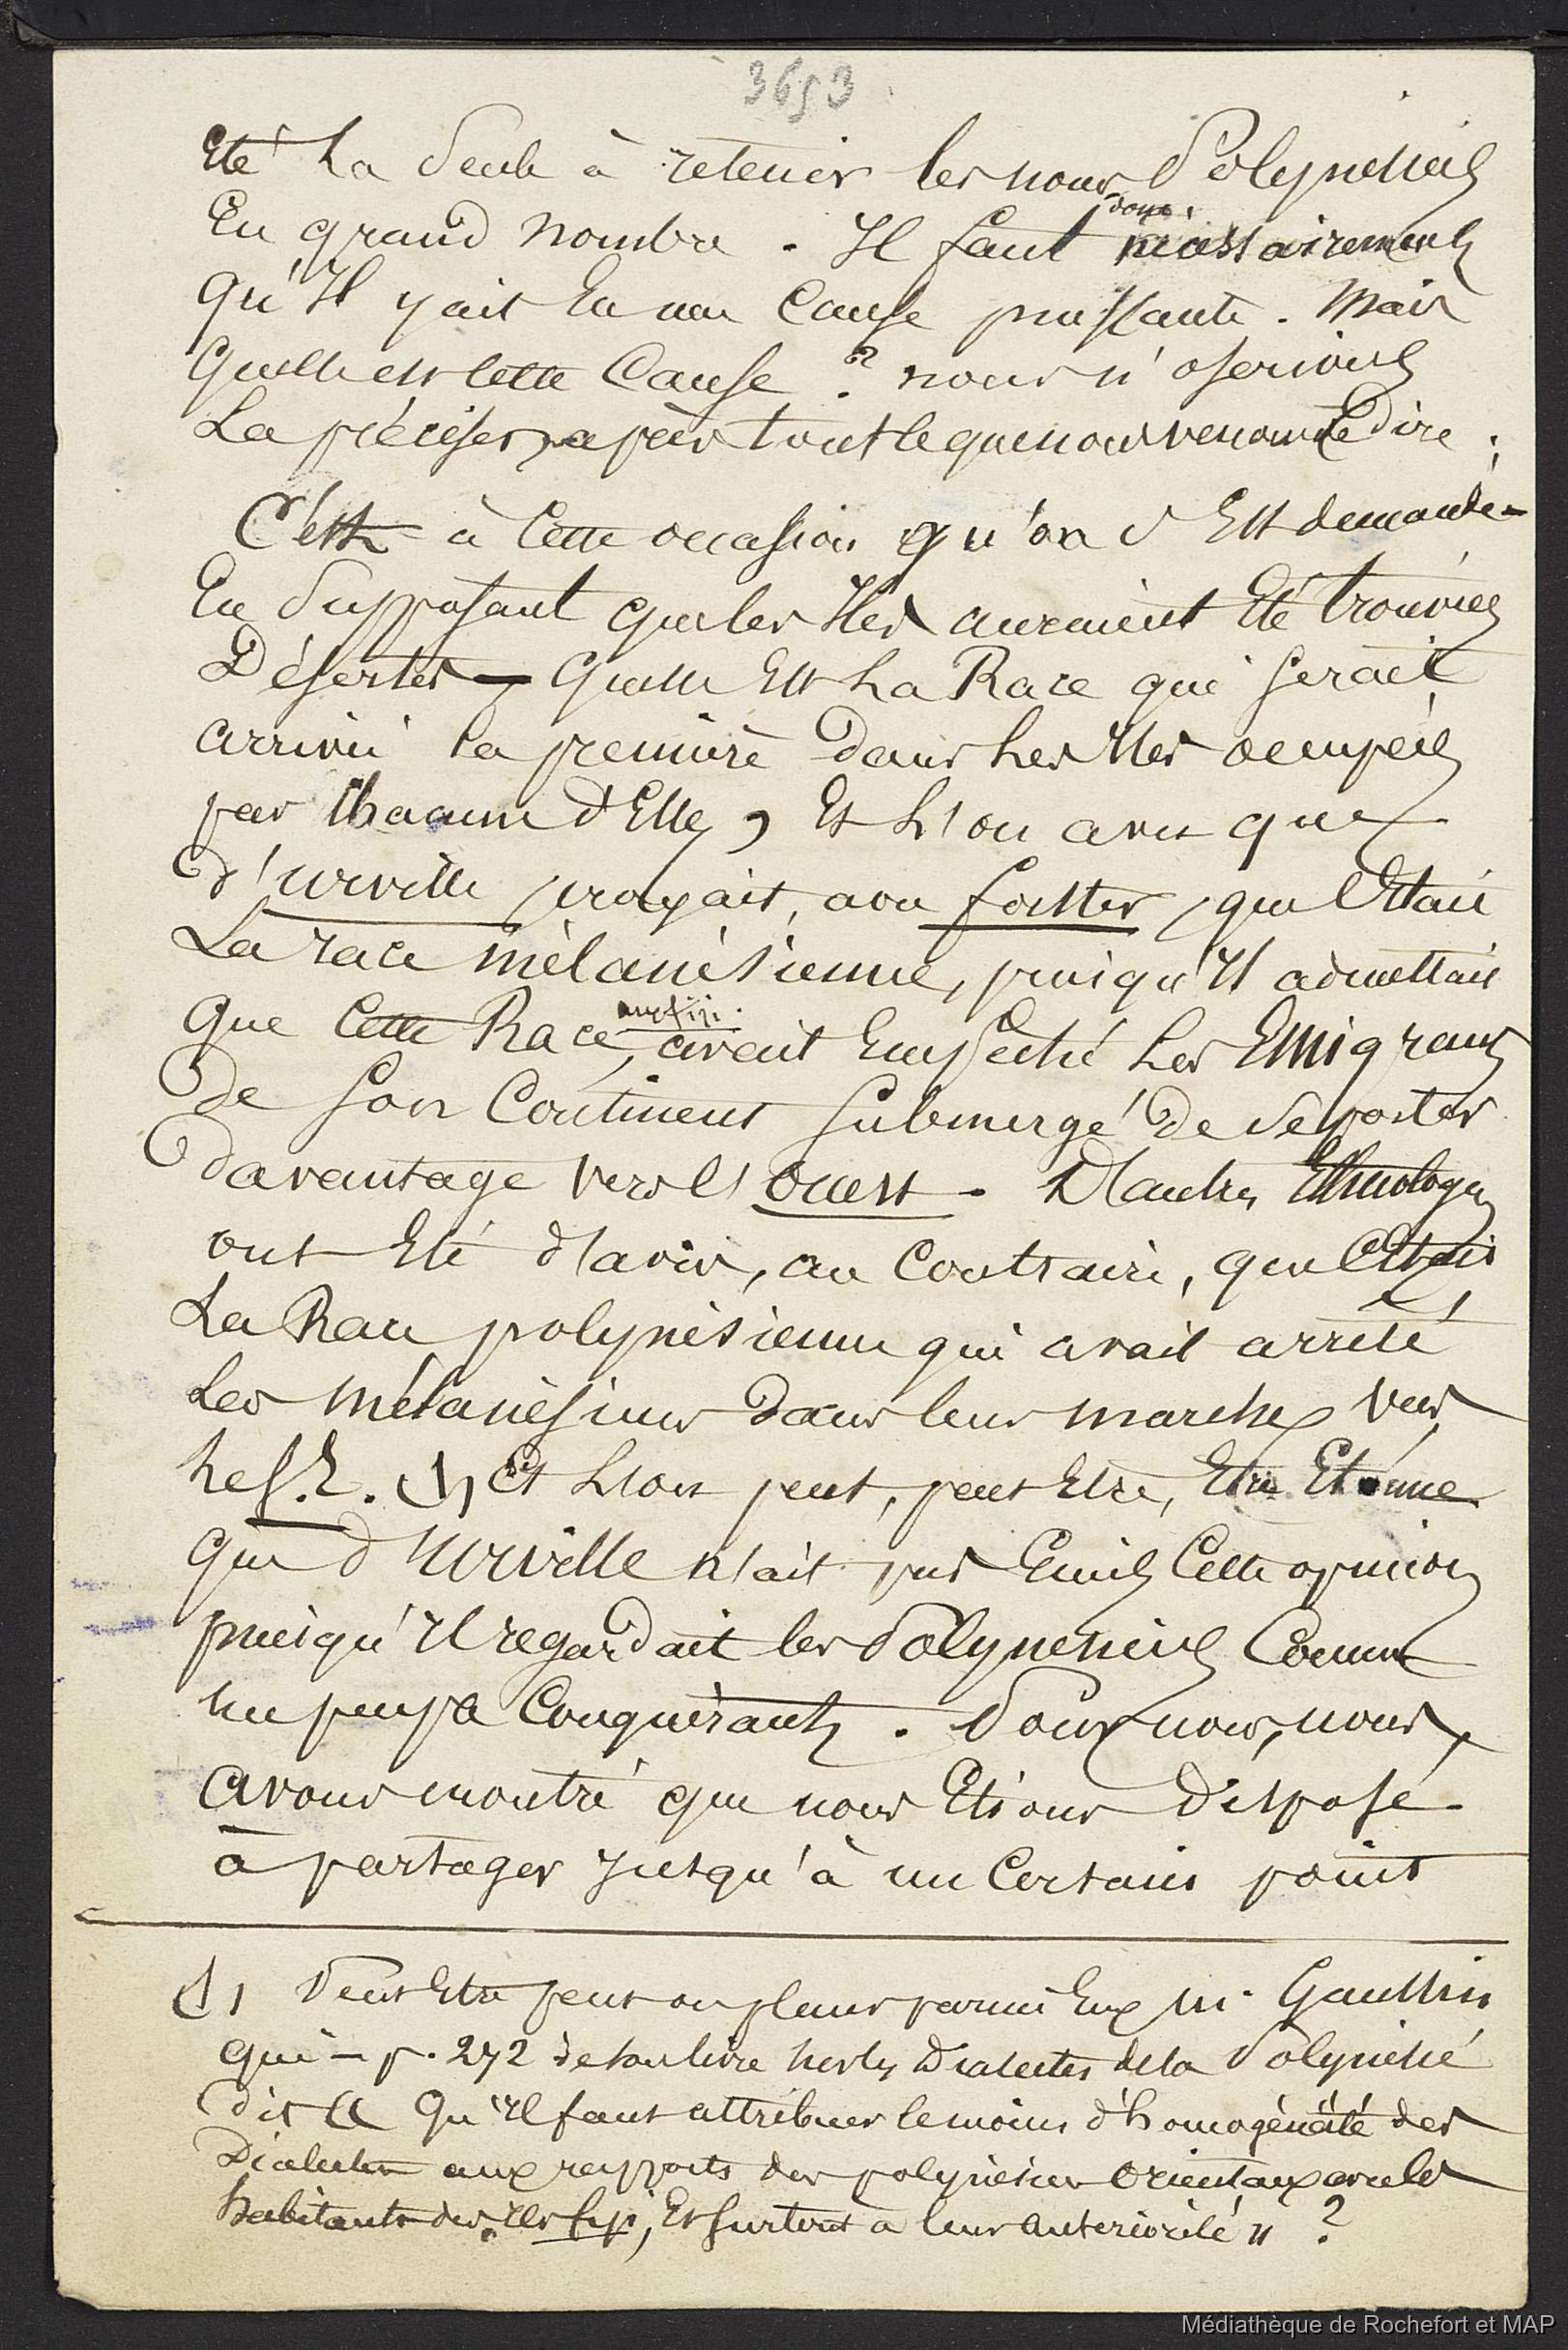 3653
Eté la seule à retenir les nous Polynésiens
En grand nombre. Il faut donc nécessairement
qu'Il y ait Eu une Cause puissante. Mais
quelle est cette Cause ? nous n'oserions
La préciser, après tout ce que nous venons de dire ;
C'est à cette occasion qu'on s'Est demandé -
En supposant que les Iles auraient Eté trouvées
Désertes — quelle Est la Race qui serait
arrivée la première dans les Iles occupées
par chacune d'Elles, Et l'on a vu que
d'urville croyait, avec forster, que c'Etait
La race mélanésienne, puisqu'Il admettait
que cette Race, aux fiji. avait Empêché les Emigrans
de son Continent submergé de se porter
davantage vers l'ouest. D'autres Ethnologues
ont Eté d'avis, au Contraire, que c'Etait
La Race polynésienne qui avait arrêté
Les mélanésiens dans leur marche vers
le S.E. (1) Et l'on peut, peut Etre, Etre Etonné
que d'Urville n'ait pas Emis Cette opinion
puisqu'Il regardait les Polynésiens Comme
un peuple Conquérant. Pour nous, nous
avons montré que nous Etions disposé
à partager jusqu'à un Certain point
(1) Peut Etre peut on placer parmi Eux Mr Gaussin
qui - p. 272 de son livre sur les Dialectes de la Polynésie
dit « qu'Il faut attribuer le moins d'homogénéité des
Dialectes aux rapports des polynésiens orientaux avec les
habitants des Iles fiji, Et surtout à leur antériorité » ?
Médiathèque de Rochefort et MAP